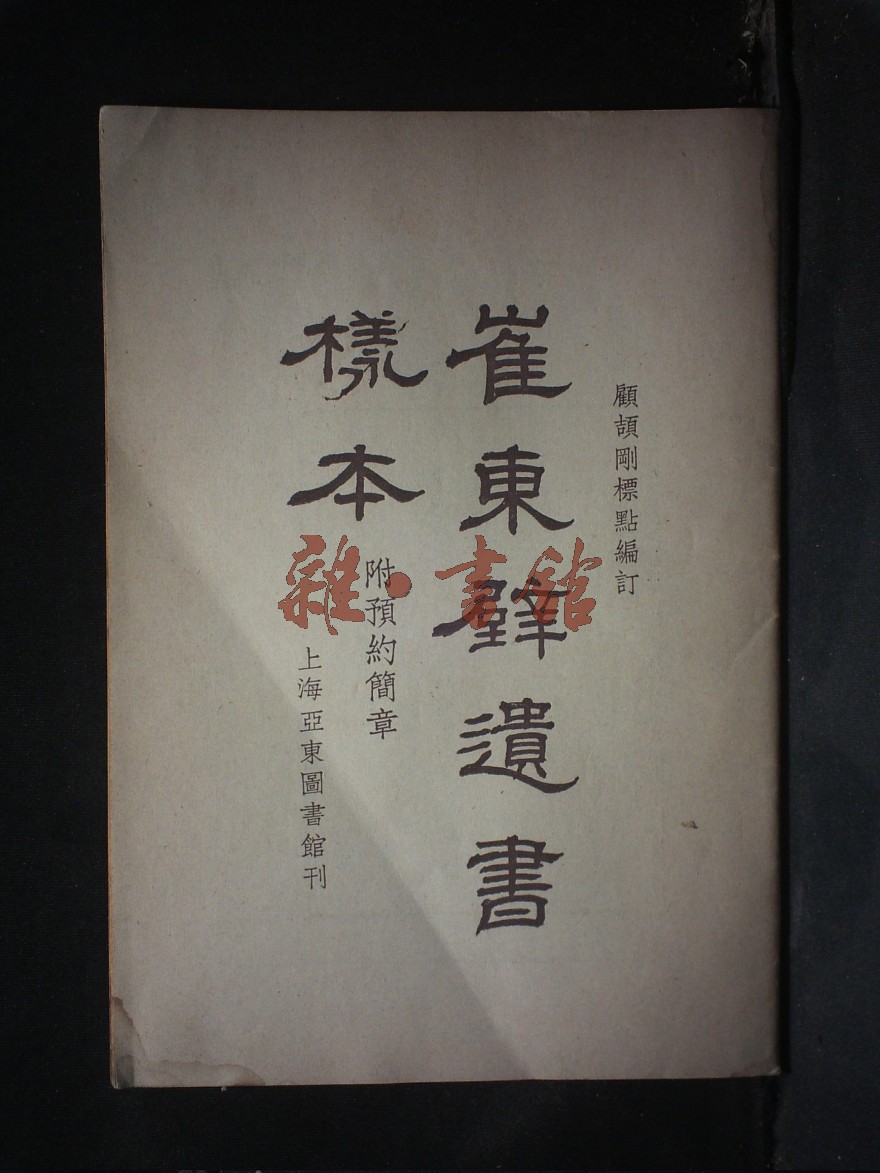 顧頡剛標點編訂
崔東壁遺書
樣本
附預約簡章
上海亞東圖書館刊
雜·書館